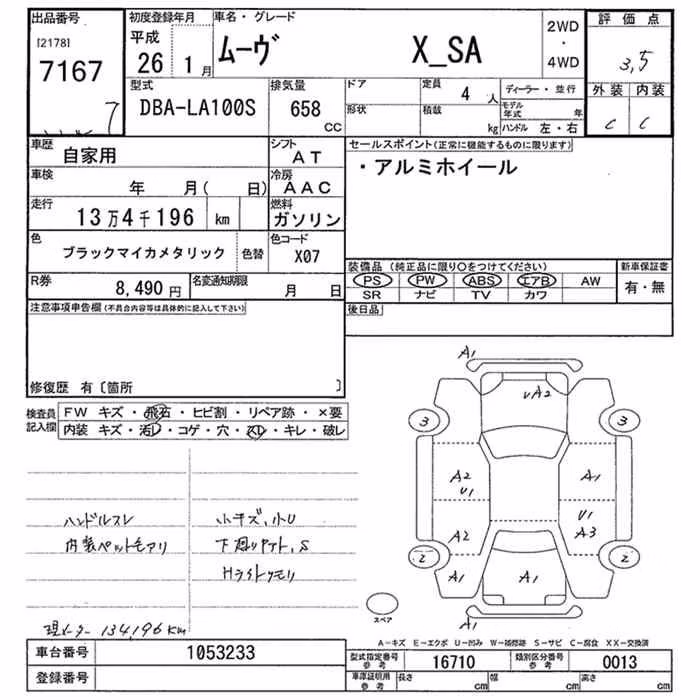 出品番号
[2178]
7167
7
初度登録年月
平成
26 1月
車名・グレード
ムーヴ X_SA
2WD
・
4WD
評価点
3,5
外装 内装
C C
型式
DBA-LA100S
排気量
658
CC
ドア
形状
定員
4 人
積載
kg
ディーラー・並行
モデル年式 年
ハンドル 左・右
車歴
自家用
シフト
AT
車検
年 月( 日)
冷房
AAC
走行
13万4千196 km
燃料
ガソリン
色
ブラックマイカメタリック
色替
色コード
X07
R券
8,490 円
名変通知期限
月 日
セールスポイント(正常に機能するものに限ります)
・アルミホイール
装備品 (純正品に限り○をつけてください)
PS PW ABS エアB AW
SR ナビ TV カワ
新車保証書
有・無
後日品
注意事項申告欄(不具合内容等は具体的に記入して下さい)
修復歴 有〔箇所 〕
検査員
記入欄
FW キズ・飛石・ヒビ割・リペア跡・×要
内装 キズ・汚レ・コゲ・穴・スレ・キレ・破レ
ハンドルスレ
内装ペット毛アリ
小キズ、小U
下廻りサビ、S
Hライトクモリ
現メーター 134,196 Km
A1
UA2
3 3
A2
U1
A1
A2
U1
A3
2 2
A1 A1 A1
A1
スペア
A-キズ E-エクボ U-凹み W-補修跡 S-サビ C-腐食 XX-交換済
車台番号
1053233
登録番号
型式指定番号
参考
16710
類別区分番号
参考
0013
車庫証明用
参考
長さ cm 幅 cm 高さ cm